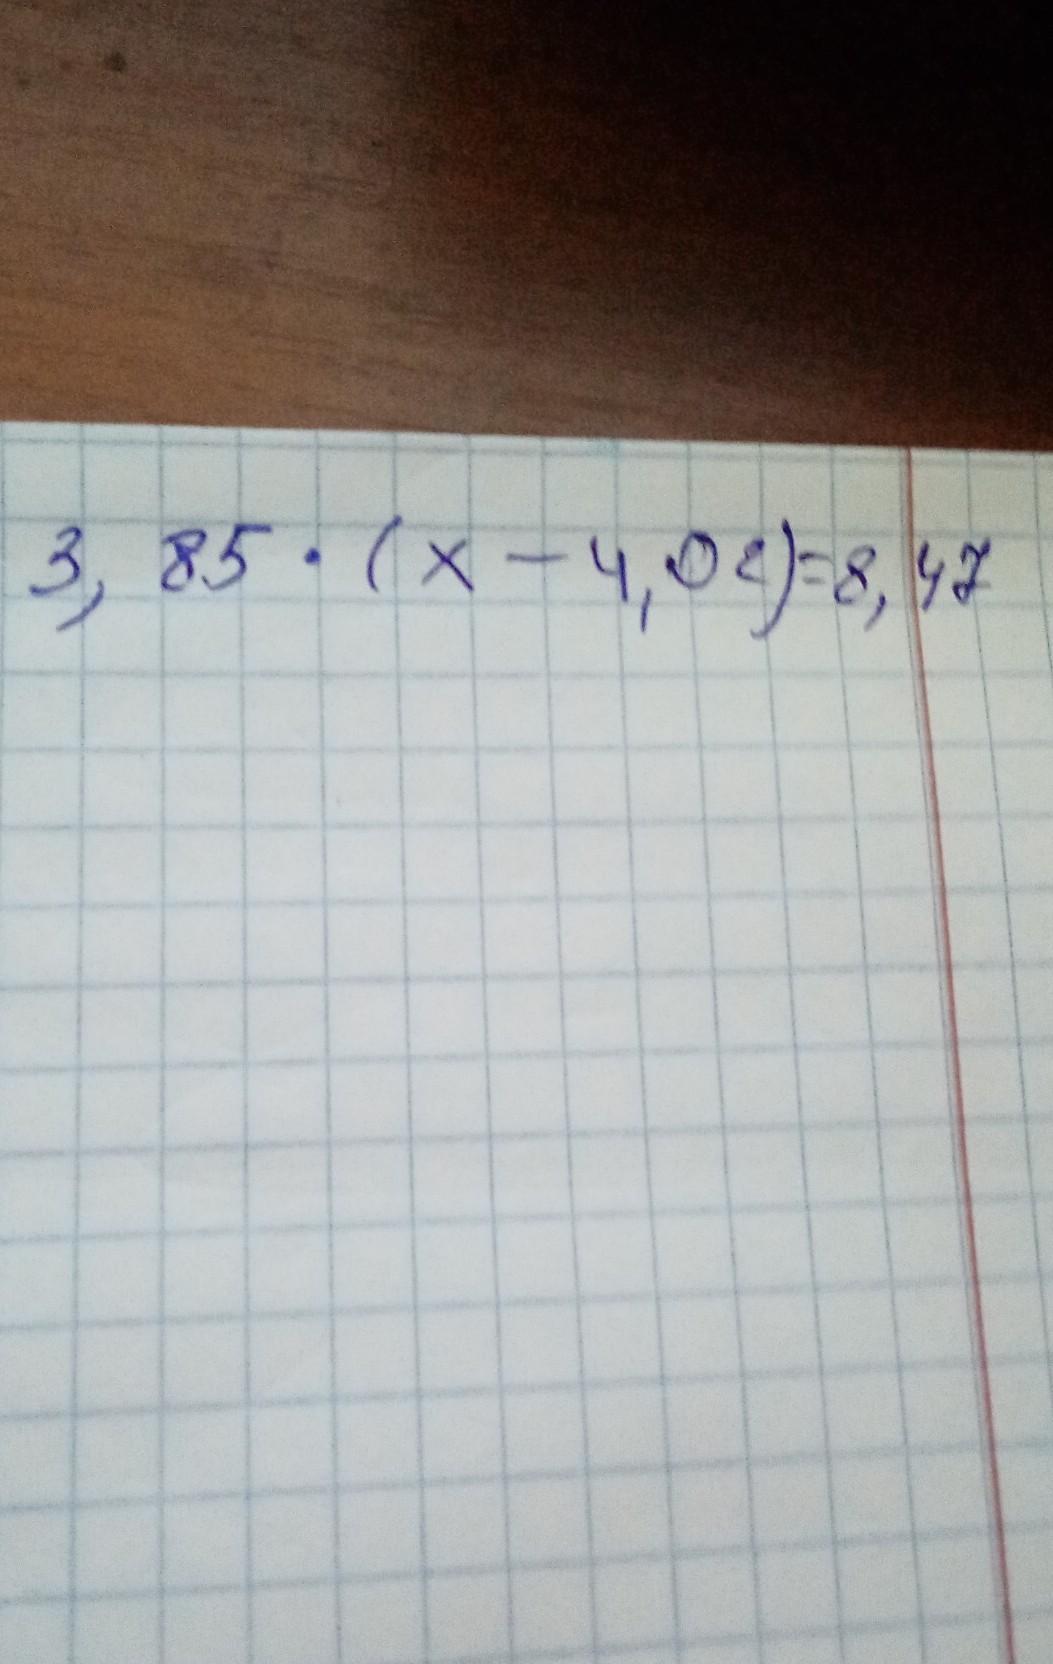 3,85 · (x - 4,02) = 8,47